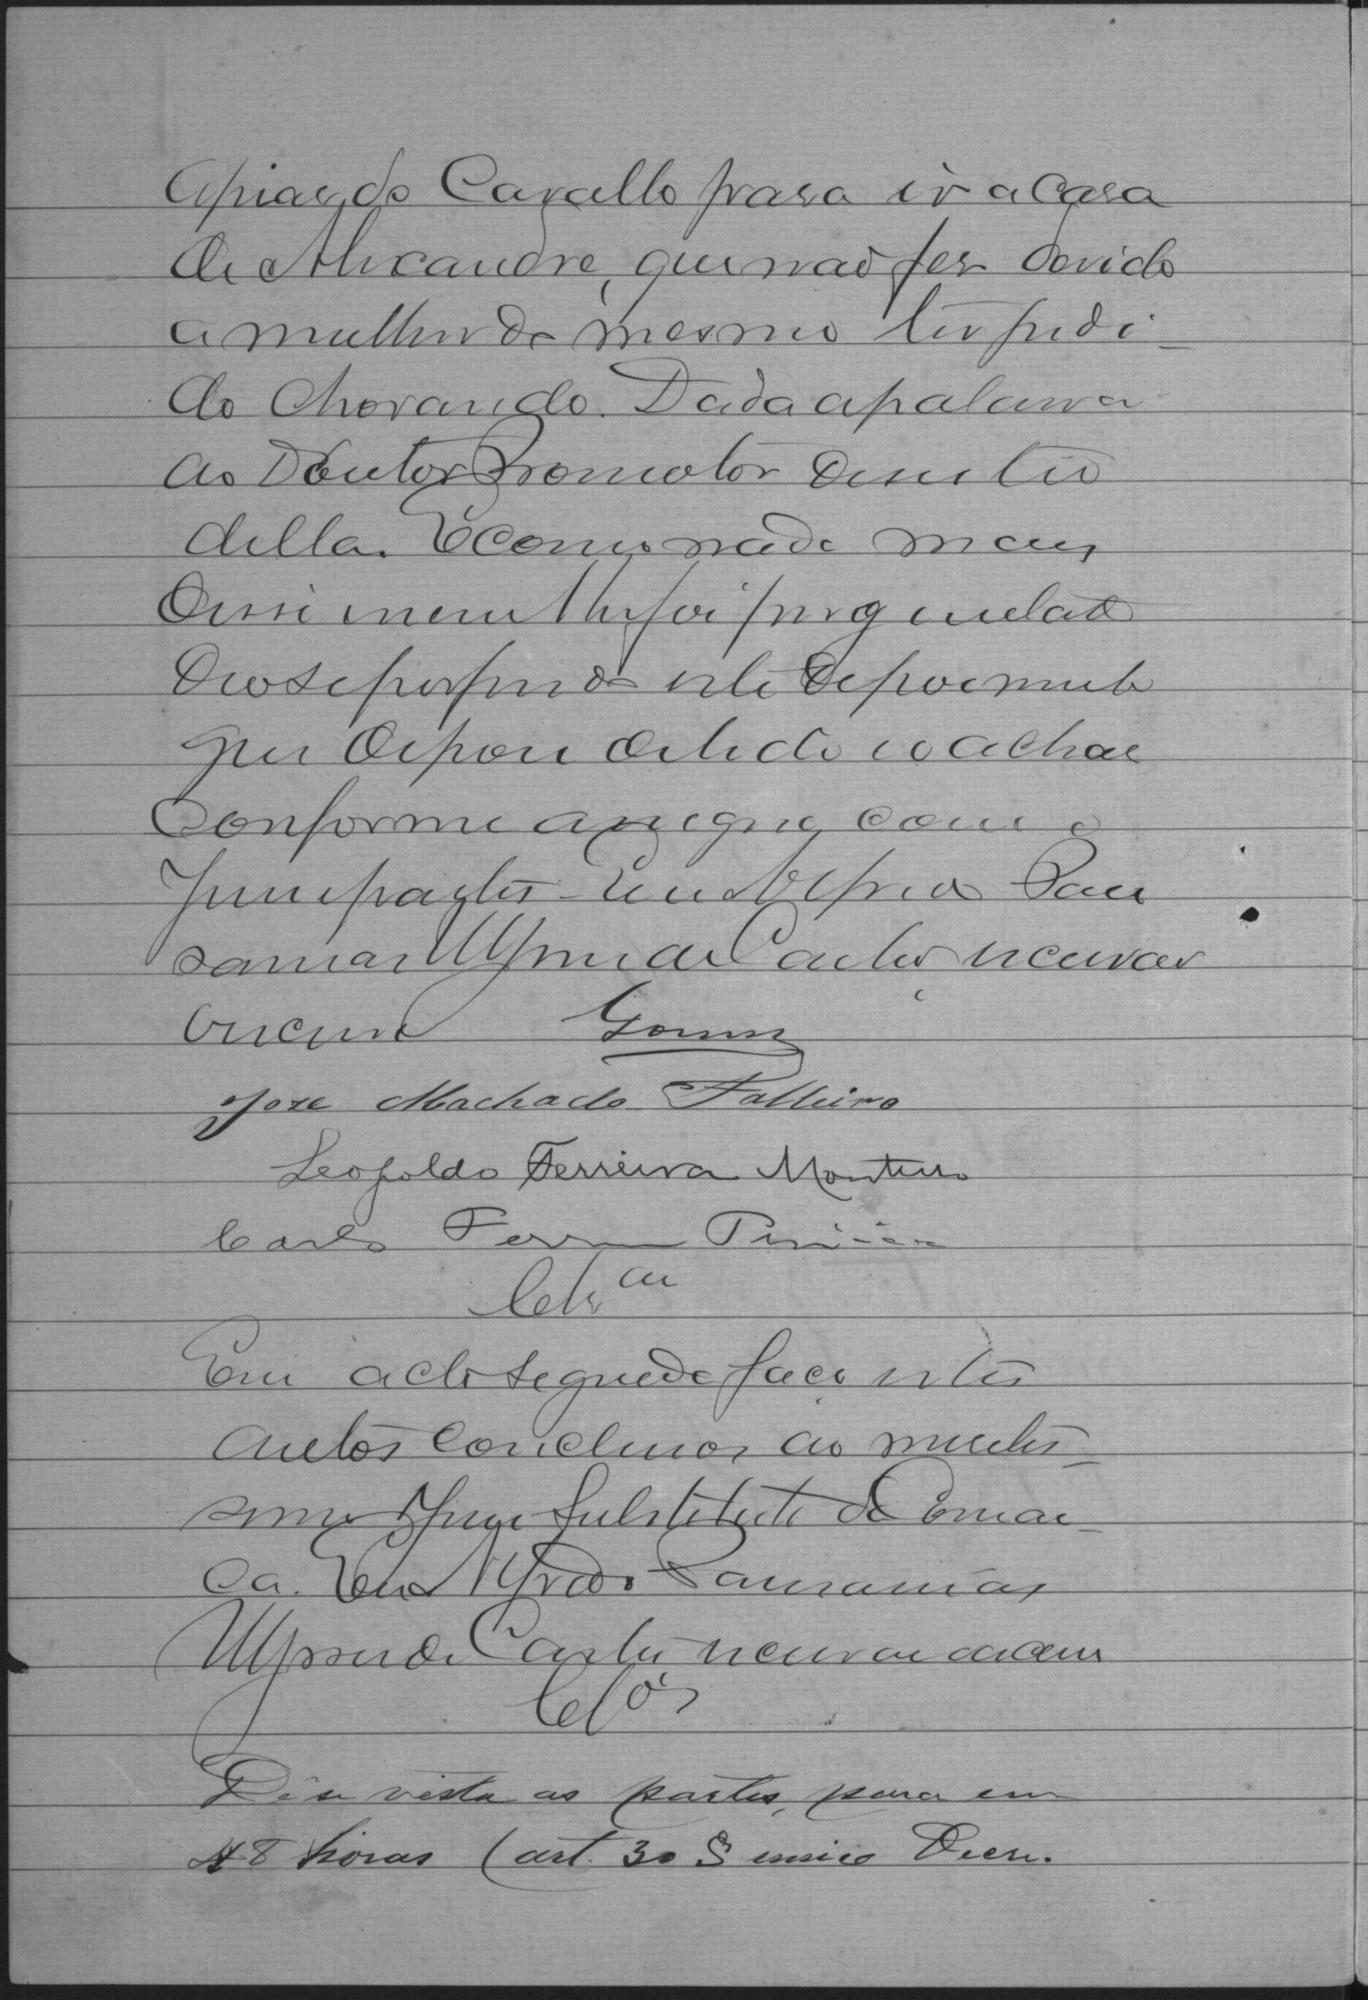 apiar do Cavallo para ir a casa
de Alexandre, que não fes devido
a mulher do mesmo ter pedi-
do chorando. Dada a palavra
ao Doutor Promotor desistio
della. E como nada mais
disse nem lhe foi perguntado
deo-se por findo este depoimento
que depois de lido e o achar
conforme assigna com o
Juiz e partes. Eu Alfredo Pau
sanias de Castro escrivão
escrevi Gomes
Jose Machado Palheiro
Leopoldo Ferreira Monteiro
Carlos Ferreira
Clsam
Em acto seguido faço estes
autos conclusos ao meretis-
simo Juiz Substituto da Comar-
ca. Eu Alfredo Pausanias
de Castro escrivão escrevi
Clsos
Dê-se vista as partes, para em
48 horas (art. 30 § unico Decr.